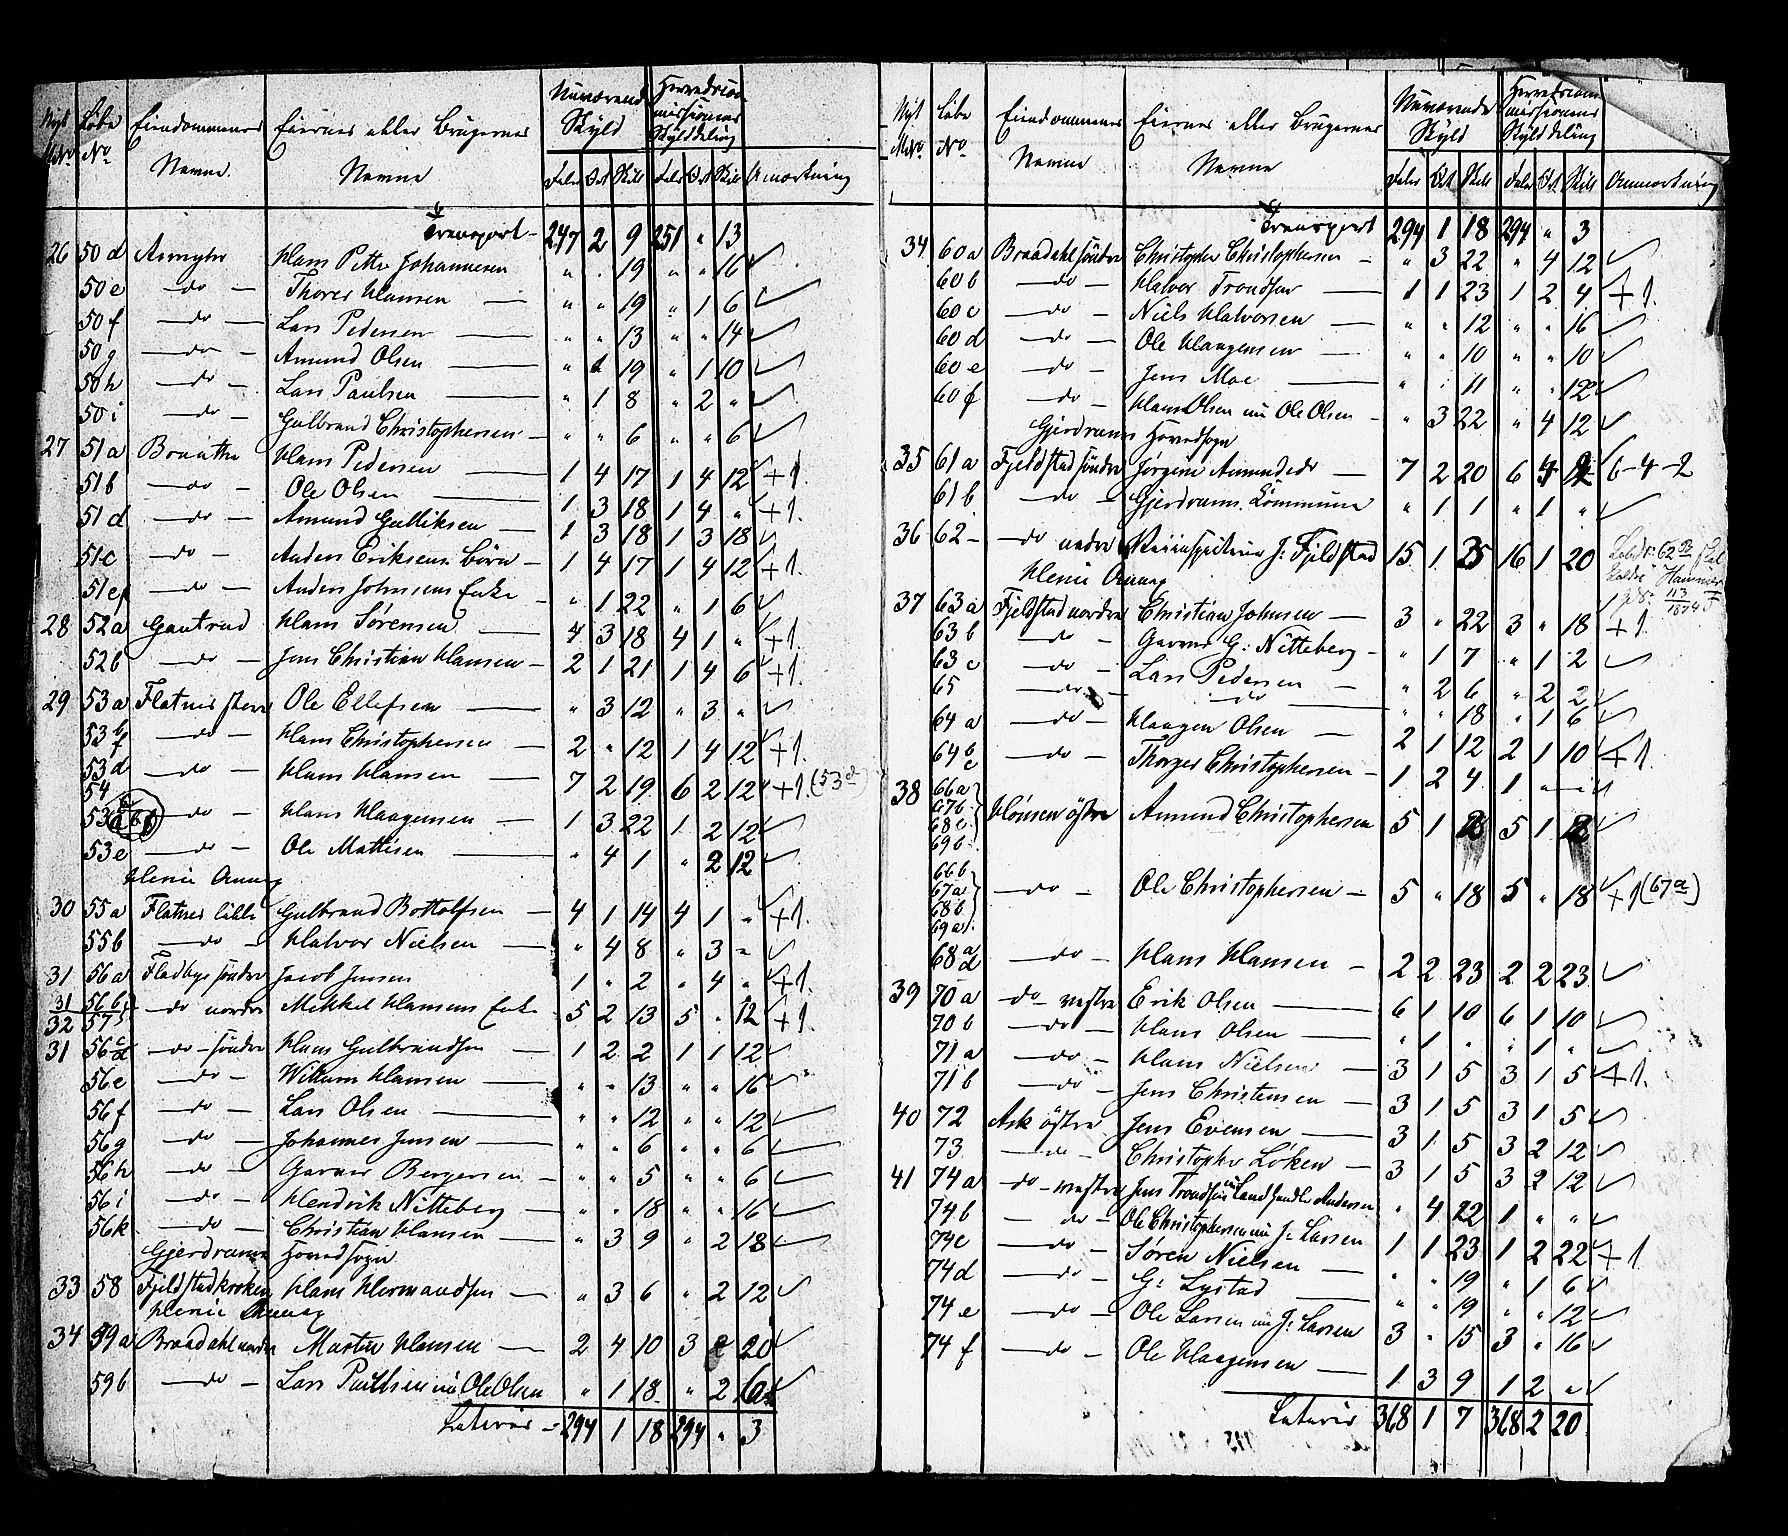 Nyt MNo Løbe No Eiendommenes Navne Eiernes eller Brugernes Navne Nuværende Skyld Herredscommissionens Skylddeling Anmærkning
Daler Ort Skill Daler Ort Skill
Transport 247 2 9 251 " 13
26 50d Asmyhr Hans Petter Johannesen " " 19 " " 16
50e do Thorer Hansen " " 19 " 1 6
50f do Lars Pedersen " " 13 " " 14
50g do Amund Olsen " 1 19 " 1 10
50h do Lars Paulsen " 1 8 " 2 "
50i do Gulbrand Christophersen " " 6 " " 6
27 51a Braathe Hans Pedersen 1 4 17 1 4 12 +1.
51b do Ole Olsen 1 3 18 1 4 " +1.
51d do Amund Gulliksen 1 3 18 1 3 18
51c do Anders Eriksens Börn 1 4 17 1 4 12 +1.
51ef do Anders Johnsens Enke " 1 22 " 1 6
28 52a Gautrud Hans Sørensen 4 3 18 4 1 " +1
52b do Jens Christian Hansen 2 1 21 1 4 6 +1.
29 53a Flatner store Ole Ellefsen " 3 12 " 3 "
53b f do Hans Christophersen 2 " 12 1 4 12 +1.
53d 54 do Hans Hansen 7 2 19 6 2 12 +1. (53d)
53 do Hans Haagensen 1 3 22 1 2 12
53e do Ole Mathisen " 4 1 " 2 12
Heni Annex
30 55a Flatner lille Gulbrand Bottolfsen 4 1 14 4 1 " +1.
55b do Halvor Nielsen " 4 8 " 3 "
31 56a Fladbye søndre Jacob Jensen 1 " 2 " 4 " +1.
31 32 56b 57 do nordre Mikkel Hansens Enke 5 2 13 5 " 12 +1.
31 56cd do søndre Hans Gulbrandsen 1 2 2 1 1 12
56e do Willum Hansen " " 13 " " 16
56f do Lars Olsen " " 12 " " 12
56g do Johannes Jensen " " 6 " " 6
56h do Gunner Bergersen " " 5 " " 6
56i do Hendrik Nitteberg " " 18 " " 16
56k do Christian Hansen " 3 9 " 2 18
Gjerdrums Hovedsogn
33 58 Fjeldstadkroken Hans Hermandsen " 3 6 " 2 12
Heni Annex
34 59a Braadahl nordre Martin Hansen 2 4 10 3 20
59b do Lars Paulsen nu Ole Olsen " 1 18 " 2
Lateris 294 1 18 294 " 3
Nyt MNo Løbe No Eiendommenes Navne Eiernes eller Brugernes Navne Nuværende Skyld Herredscommissionens Skylddeling Anmærkning
Daler Ort Skill Daler Ort Skill
Transport 294 1 18 294 " 3
34 60a Braadahl søndre Christopher Christophersen " 3 22 " 4 12
60b do Halvor Trondsen 1 1 23 1 2 4 +1.
60c do Niels Halvorsen " " 12 " " 16
60d do Ole Haagensen " " 10 " " 10
60e do Jens Moe " " 11 " " 12
60f do Hans Olsen nu Ole Olsen " 3 22 " 4 12
Gjerdrums Hovedsogn
35 61a Fjeldstad søndre Jørgine Amundsdr 7 2 20 6 4 2 6-4-2
61b do Gjerdrums Kommune " 1 1 " 1 "
36 62 do nedre J. Fjeldstad 15 1 25 16 1 20
Heni Annex
37 63a Fjeldstad nordre Christian Johnsen 3 " 22 3 " 18 +1
63b do Gunner G. Nitteberg " 1 7 " 1 2
63c do Lars Pedersen " 2 6 " 2 2
65 do do " " 18 " 1 6
64a do Haagen Olsen 2 1 12 2 1 10 +1.
64b c do Thorger Christophersen 1 2 4 1 " "
38 66a 67b 68c 69b Hønsen östre Amund Christophersen 5 1 18 5 1 18
66b 67a 68b 69a do Ole Christophersen 5 " 18 5 " 18 +1 (67a)
68a d do Hans Hansen 2 2 23 2 2 23
39 70a do vestre Erik Olsen 6 1 10 6 1 10
70b do Hans Olsen " 1 " " 1 "
71a do Hans Nielsen 3 1 5 3 1 5 +1.
71b do Jens Christensen 3 1 5 3 1 5
40 72 Ask östre Jens Evensen 3 1 5 3 2 12
73 do Christopher Løken 3 1 5 3 2 12
41 74a do vestre Jens Trondsen nu Landhandler Andersen " 4 22 1 " "
74b do Ole Christophersen nu J. Larsen 1 1 23 1 2 22 +1
74c do Søren Nielsen " " 19 " 1 6
74d do G. Lystad " " 19 " " 12
74e do Ole Larsen nu J. Larsen 3 " 15 3 " 16
74f do Ole Haagensen 1 3 9 1 2 "
Lateris 368 1 7 368 2 20